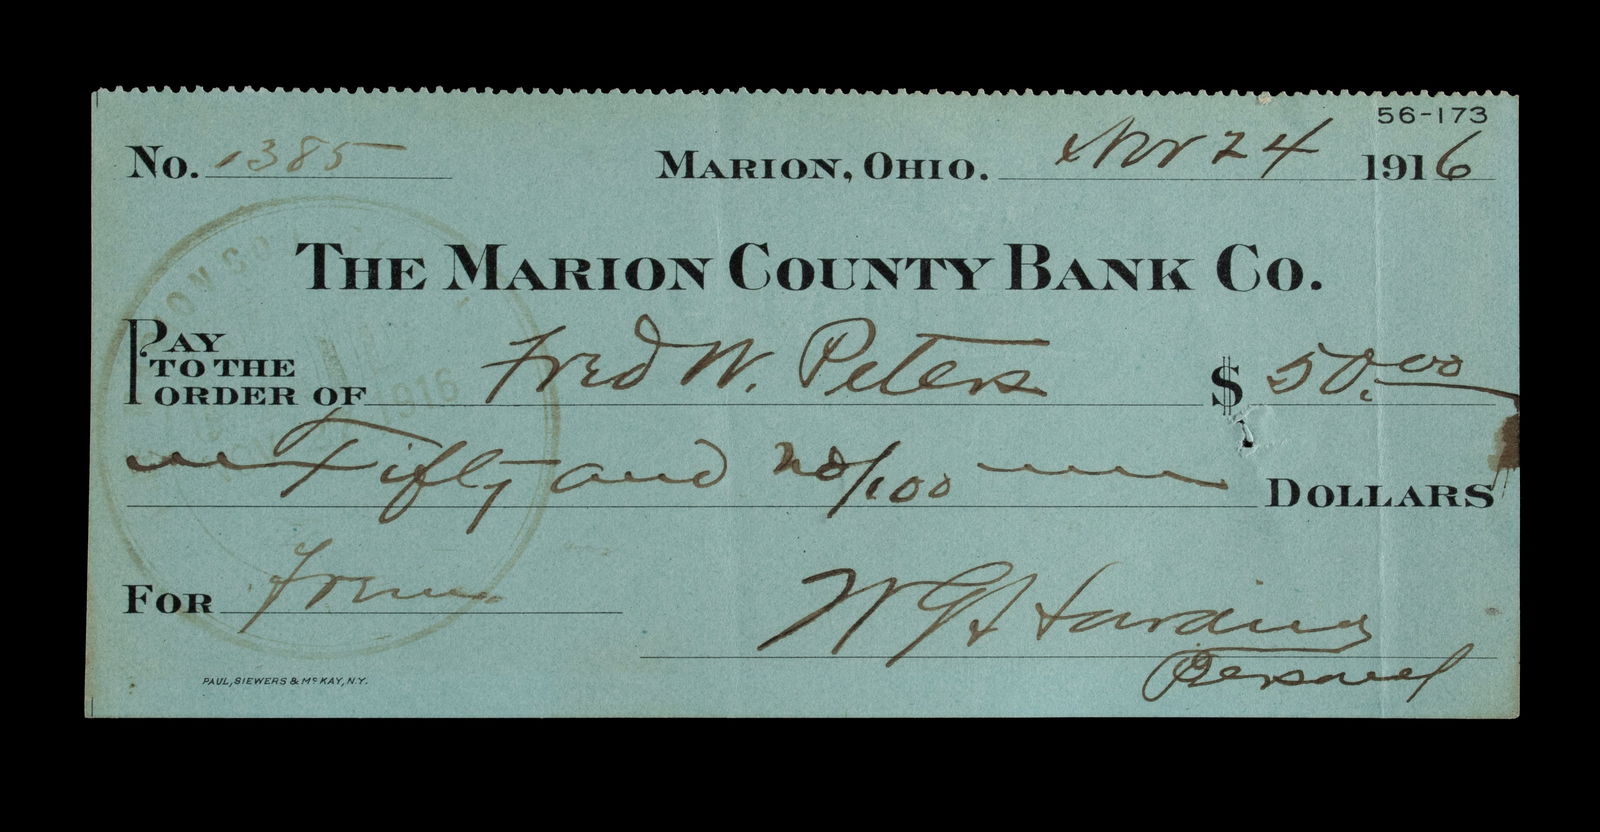 56-173
No. 1385 Marion, Ohio. Nov 24 1916
The Marion County Bank Co.
Pay to the order of Fred W. Peters $ 50.00
Fifty and no/100 Dollars
For
W G Harding
Personal
Paul, Siewers & McKay, N.Y.
1916